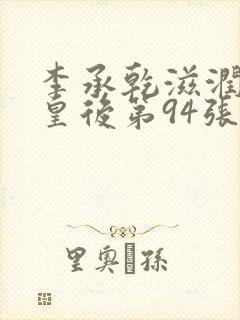 李承乾滋潤
皇後第94張
里奥·孫